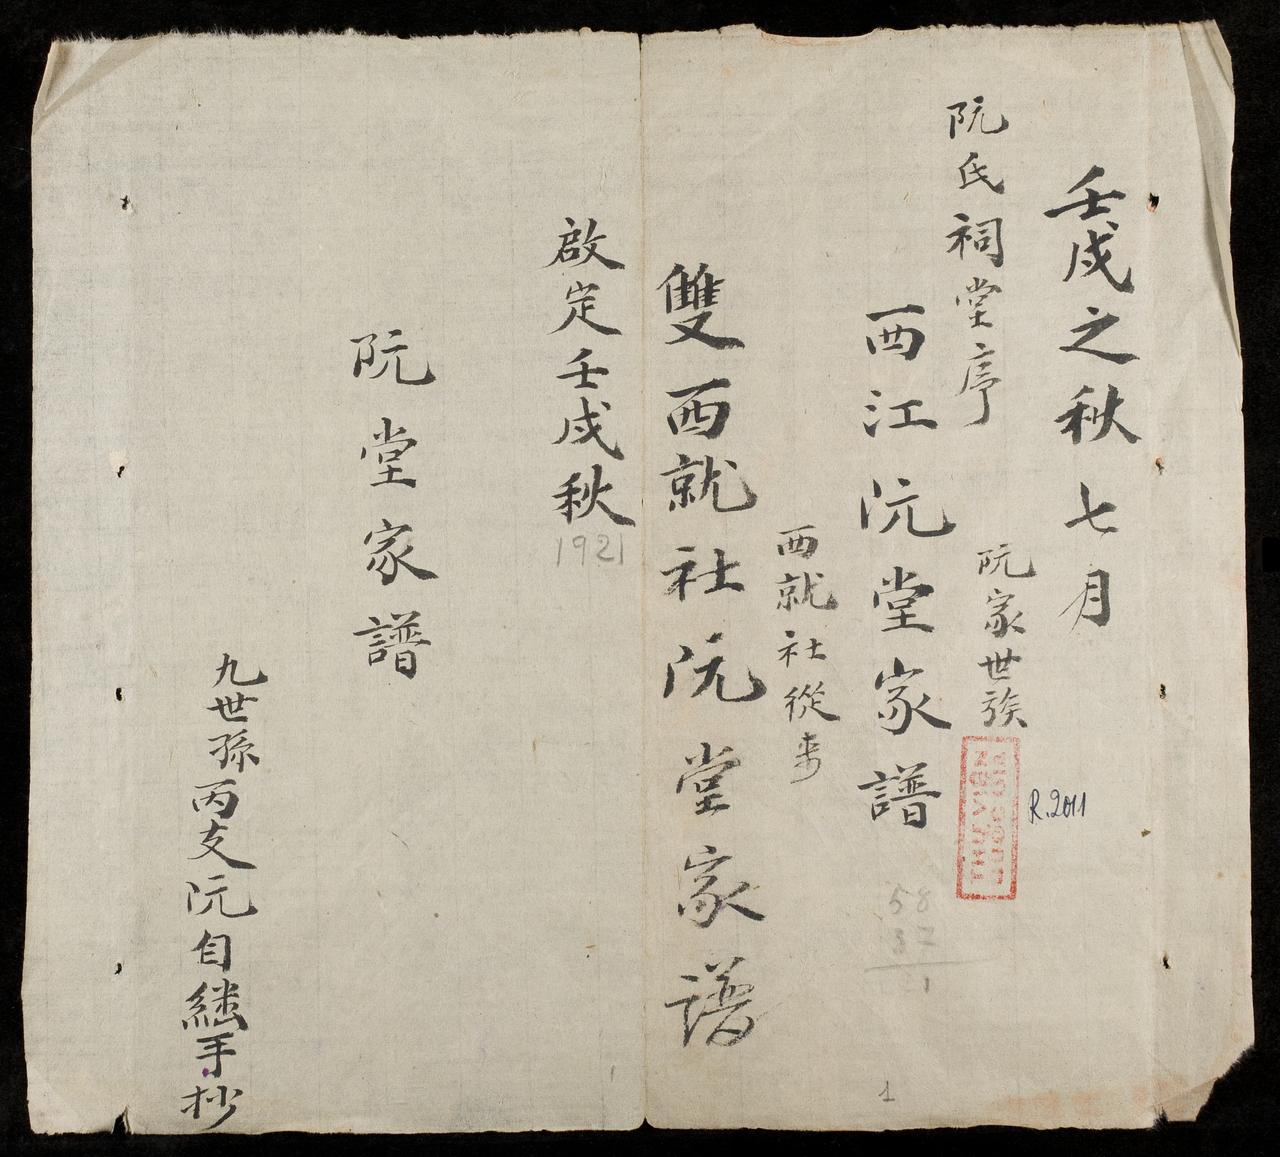 壬戌之秋七月
阮氏祠堂序
阮家世族
R.2011
西江阮堂家譜
58
32
1
西就社從来
雙西就社阮堂家譜
啟定壬戌秋
1921
阮堂家譜
九世孫丙支阮自継手抄
1